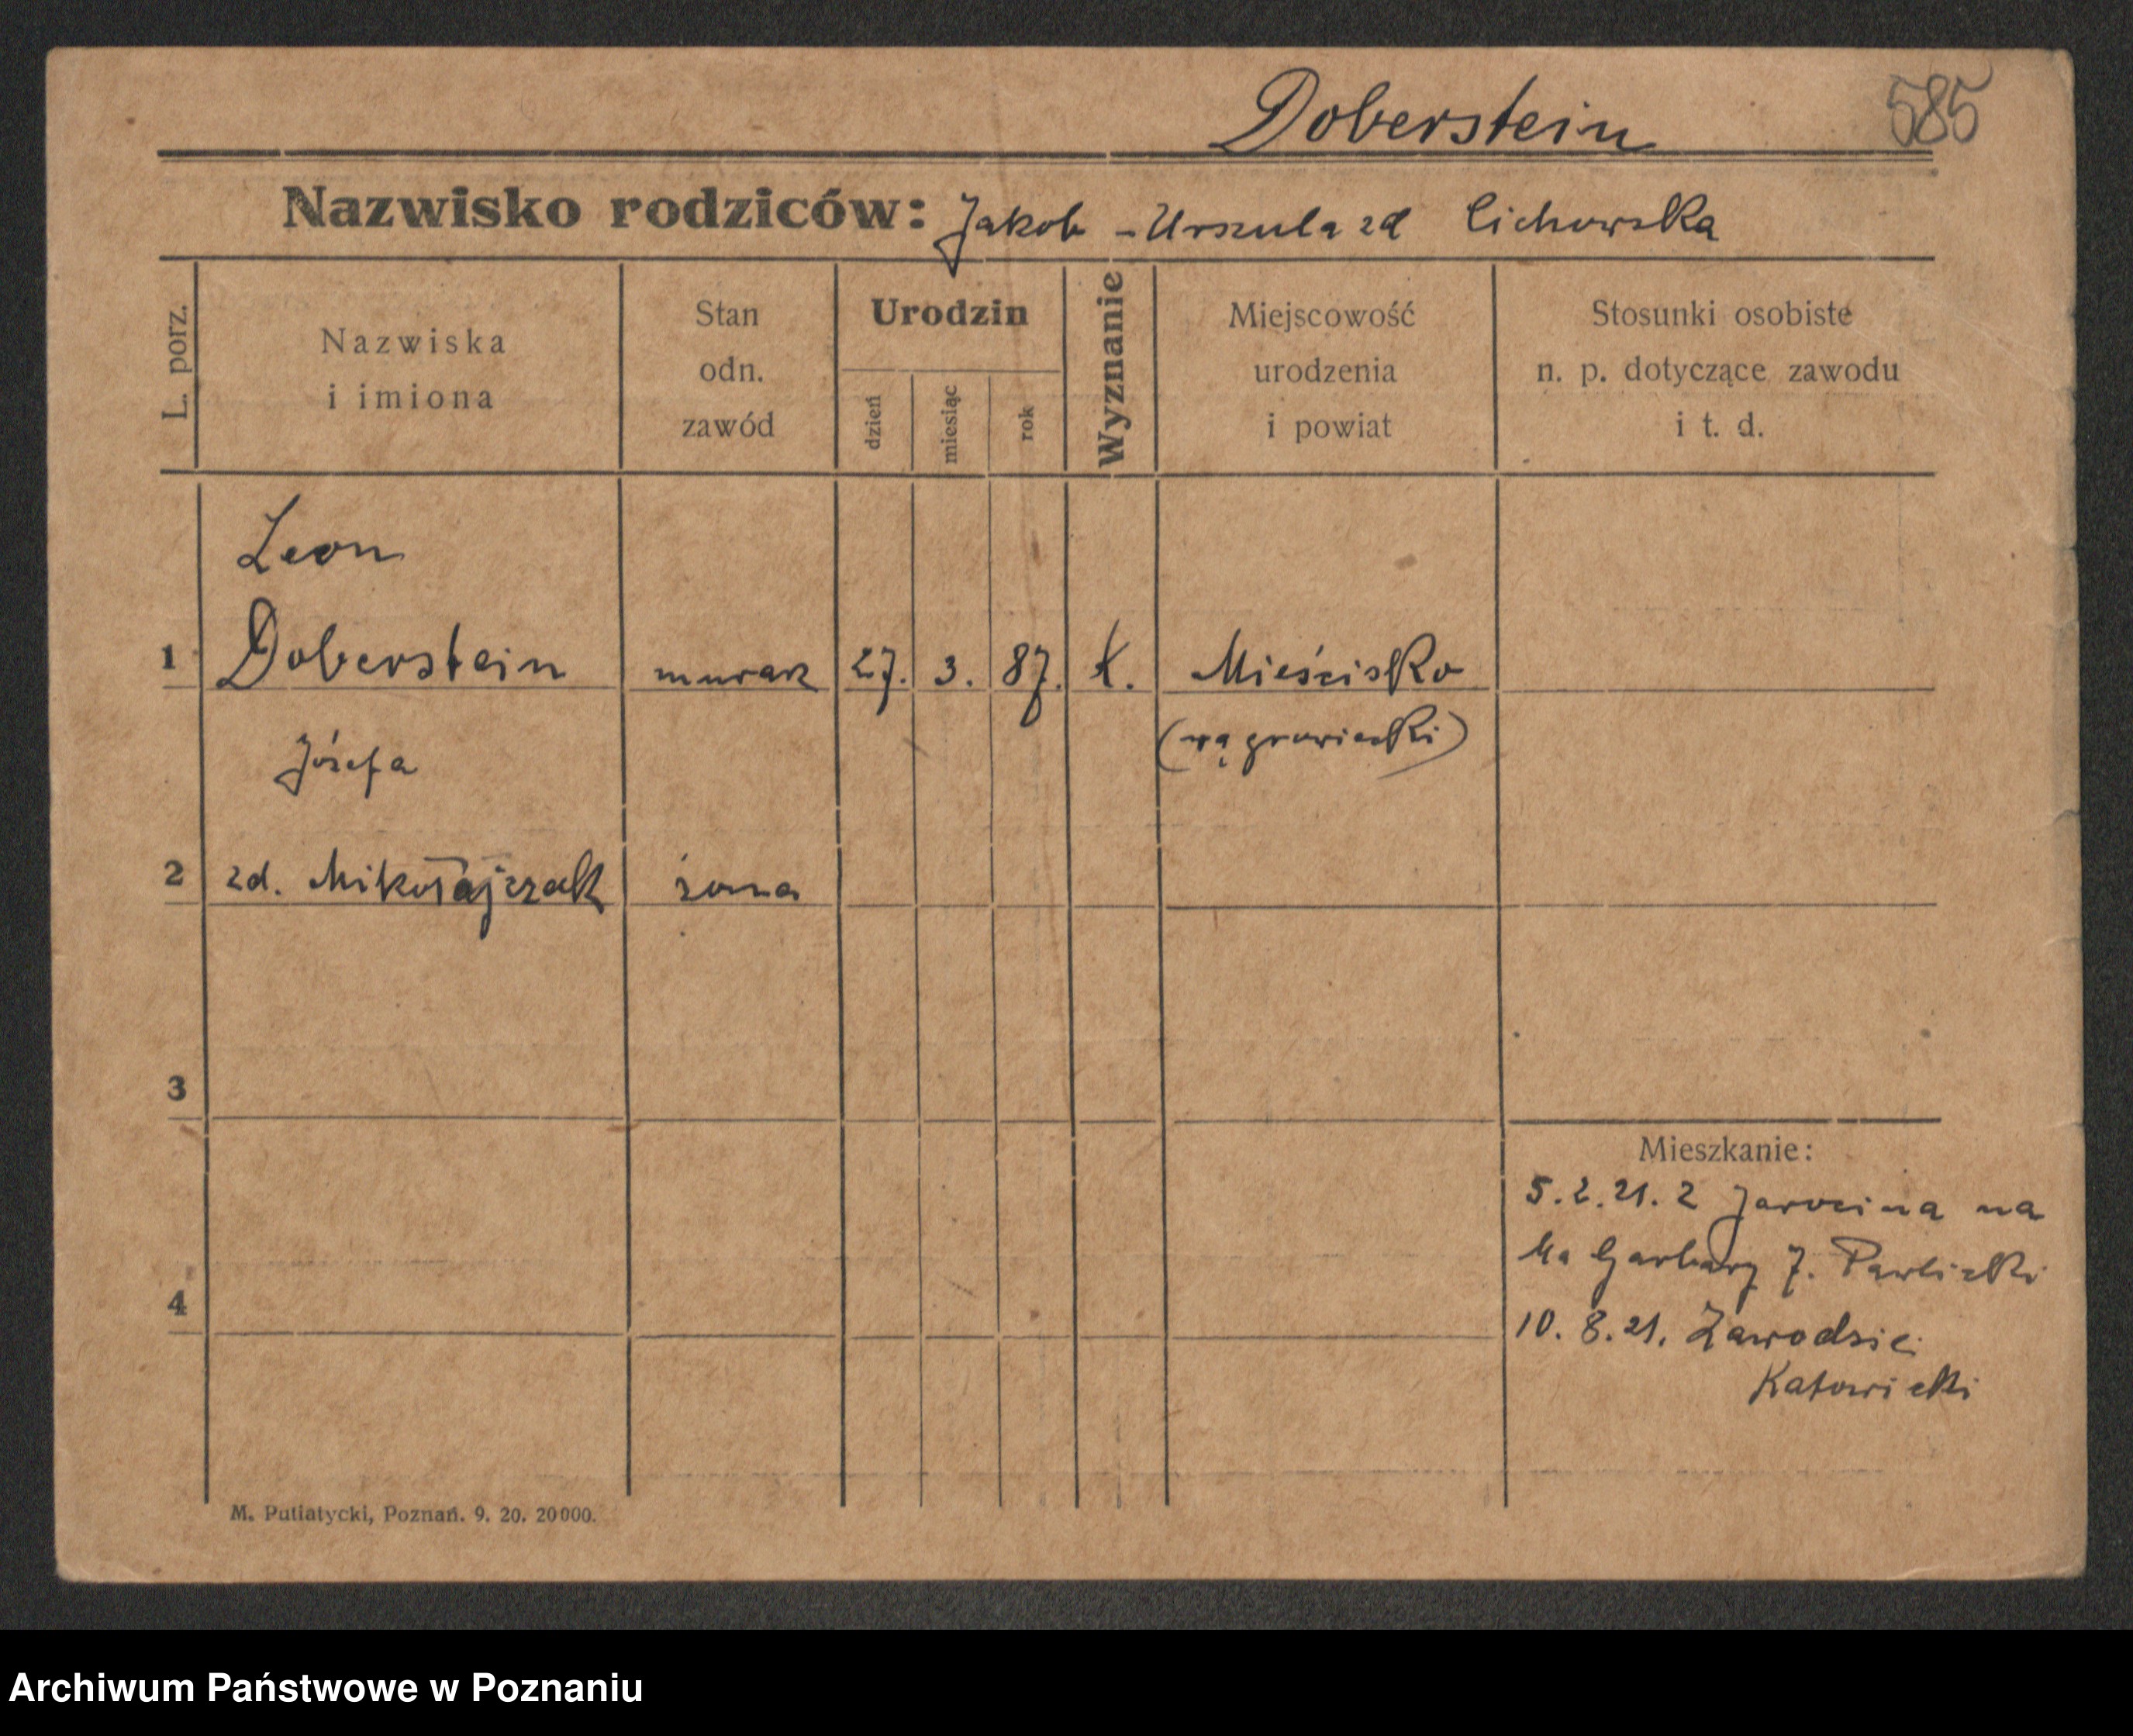 Doberstein
585
Nazwisko rodziców: Jakob - Urszula zd Cichowska
L. porz.
Nazwiska
i imiona
Stan
odn.
zawód
Urodzin
dzień
miesiąc
rok
Wyznanie
Miejscowość
urodzenia
i powiat
Stosunki osobiste
n. p. dotyczące zawodu
i t. d.
Leon
1 Doberstein murarz 27. 3. 87. k. Mieścisko
(wągrowiecki)
Józefa
2 zd. Mikołajczak żona
3
Mieszkanie:
5.2.21. z Jarocina na
Garbary 7. Pawlicki
4
10.8.21. Zawodzie
Katowicki
M. Putiatycki, Poznań. 9. 20. 20000.
Archiwum Państwowe w Poznaniu